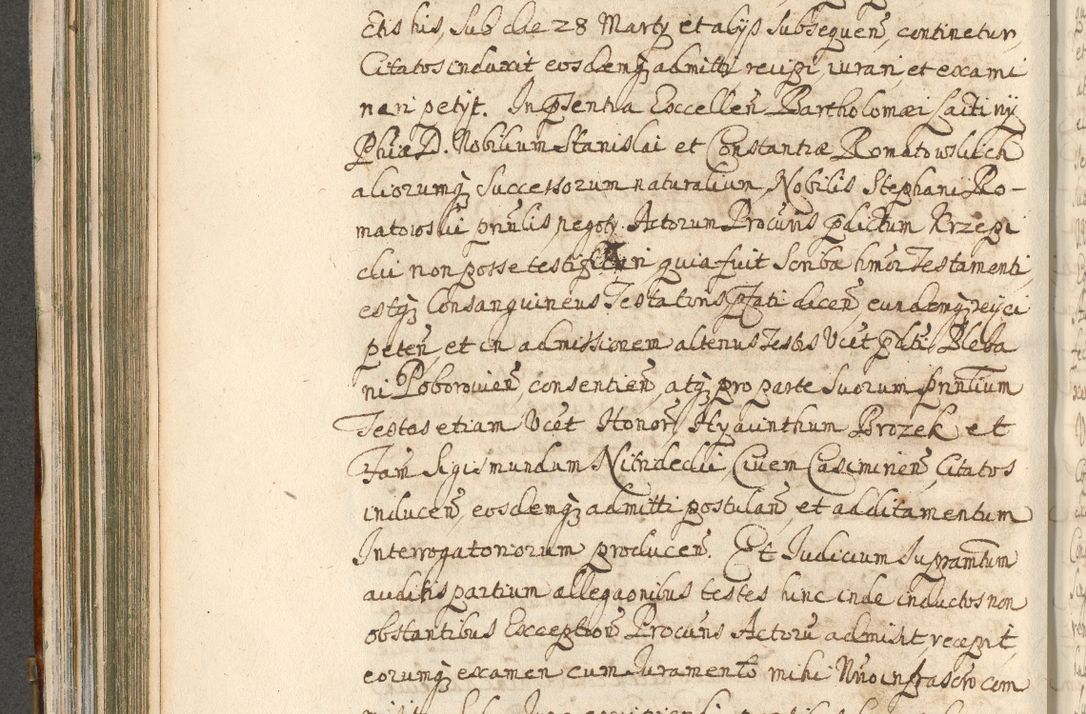 Ctis his, sub die 28 Marty et alijs subsequen, continetur,
Citatos induxit eosdemq admitti, recipi, iurari et exami
nari petijt. In pñtia Excellen Bartholomæi
Phiæ D. Nobilium Stanislai et Constantiæ Romatowskich
aliorumq successorum naturalium, Nobilis Stephani Ro-
matowskii prñlis, negoty Actorum Procuris pdictum Krzepi
cki non posse testificari quia fuit Scriba hmoi Testamenti,
estq Consanguineus Testatoris pfati dicen, eundemq reijci
peten, et in admissionem alterius Testis Vcet pdti Pleba
ni Poborovien, consentien, atq pro parte suorum prñlium
Testes etiam Vcet Honor, Hyacinthum Brozek et
Fam Sigismundum Civem Casimirien, Citatos
inducen, eosdemq admitti postulan, et additamentum
Interrogatoriorum producen. Et Judicium supramtum
auditis partium allegaonibus testes hinc inde inductos non
obstantibus Exception Procuris Actoru admisit, recepit,
eorumq examen cum iuramento mihi Nrio infrascro com